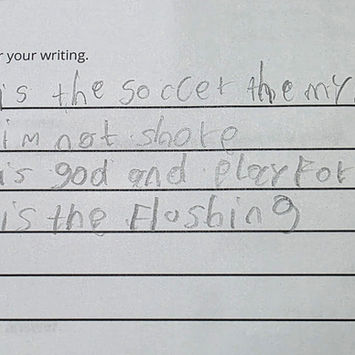 r your writing.
is the soccer the my
im not shore
is god and play for
is the Flashing